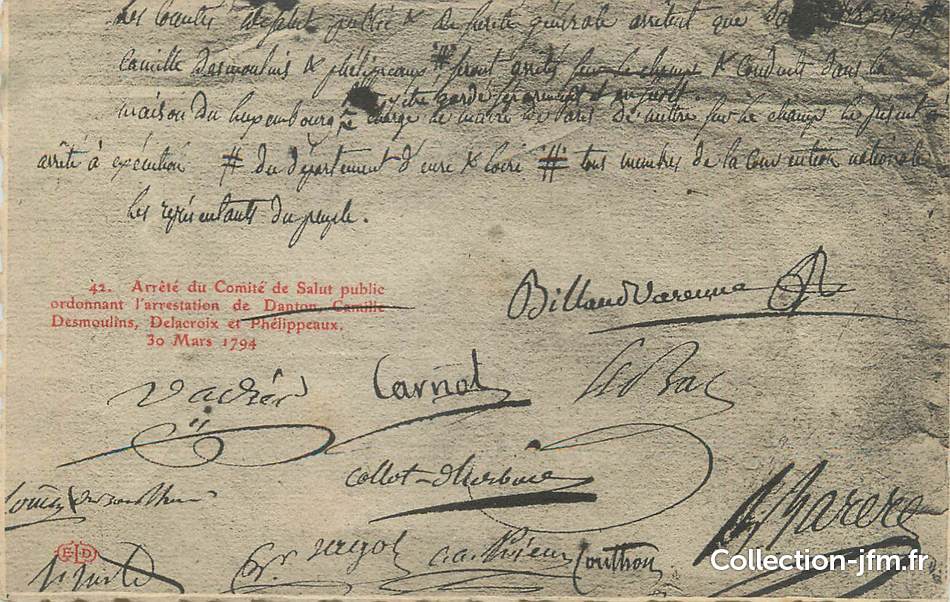 Les Comités de salut public & de sureté générale arrêtent que Danton, Lacroix
Camille Desmoulins & phélippeaux # seront arrêtés sur le champ & conduits dans la
maison du luxembourg pour y être gardés séparément et au secret
chargent le maire de Paris de mettre sur le champ le présent
arrêté à exécution # du département d'eure & loire # tous membres de la convention nationale
Les représentants du peuple.
42. Arrêté du Comité de Salut public
ordonnant l'arrestation de Danton, Camille
Desmoulins, Delacroix et Phélippeaux.
30 Mars 1794
Billaud Varenne
Vadier Carnot Le Bas
Collot-d'herbois
Louis du bas Rhin
B Barere
ELD
St Just Jagot C. a. Prieur Couthon
Collection-jfm.fr